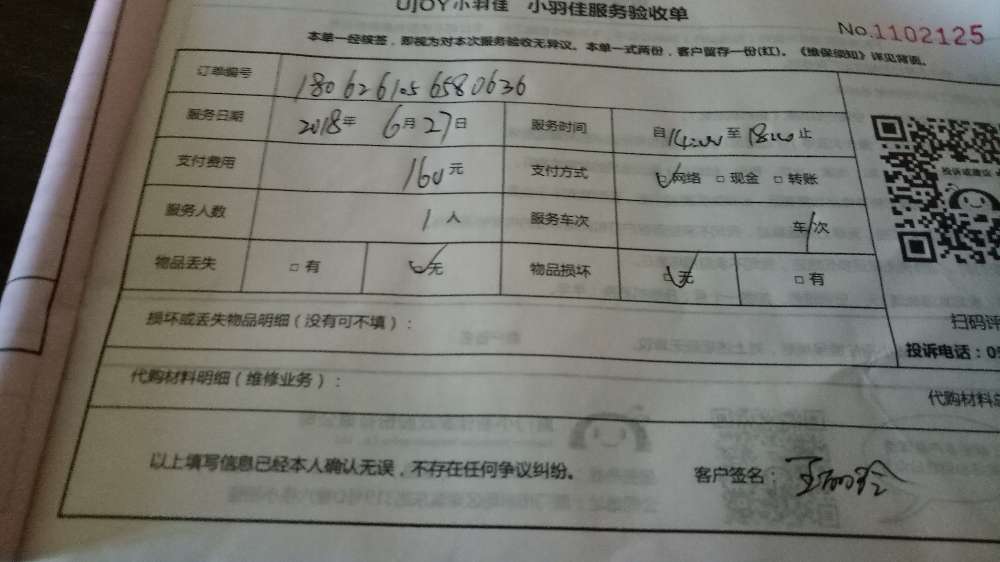 UJOY小羽佳 小羽佳服务验收单
No.1102125
本单一经核签，即视为对本次服务验收无异议。本单一式两份，客户留存一份(红)。《维保须知》详见背面。
订单编号 1806261056580636
服务日期 2018年 6月27日 服务时间 自14:00至18:00止
支付费用 160元 支付方式 □网络 □现金 □转账
投诉或建议
服务人数 1人 服务车次 车/次
物品丢失 □有 □无 物品损坏 □无 □有
损坏或丢失物品明细（没有可不填）：
扫码评
投诉电话：05
代购材料明细（维修业务）：
代购材料总
以上填写信息已经本人确认无误，不存在任何争议纠纷。 客户签名：